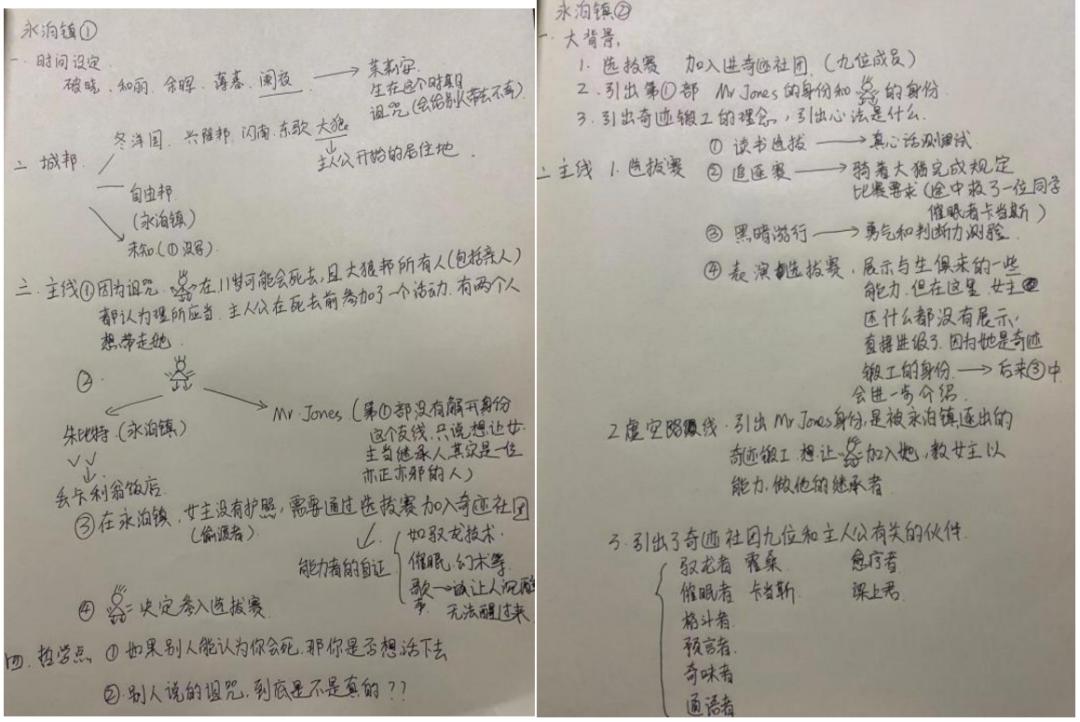 永泊镇①
一. 时间设定
破晓、和丽、余晖、薄暮、阑夜 → 莫莉安
生在这个时期
诅咒(会给别人带去不幸)
二 城邦
冬洋国、兴雅邦、闪南、东歌、大狼
主人公开始的居住地
自由邦
(永泊镇)
未知(①没写)
三. 主线①因为诅咒, 在11岁可能会死去,且大狼邦所有人(包括亲人)
都认为理所应当. 主人公在死去前参加了一个活动. 有两个人
想带走她.
②
朱比特(永泊镇)
丢卡利翁饭店
Mr. Jones (第①部没有解开身份
这个支线. 只说想让女
主当继承人其实是一位
亦正亦邪的人)
③在永泊镇, 女主没有护照, 需要通过选拔赛 加入奇迹社团
(偷渡者)
能力者的自证
如驭龙技术.
催眠. 幻术等.
歌→ 让人沉醉
无法醒过来
④ 决定参入选拔赛
四. 哲学点 ①如果别人能认为你会死. 那你是否想活下去
②别人说的诅咒, 到底是不是真的??
永泊镇②
一. 大背景:
1. 选拔赛 加入进奇迹社团. (九位成员)
2. 引出第①部 Mr Jones的身份和 的身份.
3. 引出奇迹锻工的理念, 引出心法是什么.
二主线 1. 选拔赛
① 读书选拔 → 真心话测试
② 追逐赛 → 骑着大猫完成规定
比赛要求(途中救了一位同学
催眠者卡当斯)
③ 黑暗游行 → 勇气和判断力测验.
④ 表演选拔赛, 展示与生俱来的一些
能力. 但在这里. 女主
还什么都没有展示,
直接进级了. 因为她是奇迹
锻工的身份. → 后来③中
会进一步介绍.
2 虚空路线. 引出Mr Jones身份, 是被永泊镇逐出的
奇迹锻工 想让 加入她, 教女主以
能力, 做他的继承者.
3. 引出了奇迹社团九位和主人公有关的伙伴.
驭龙者 霍桑 愈疗者
催眠者 卡当斯. 梁上君.
格斗者.
预言者.
奇味者
通语者